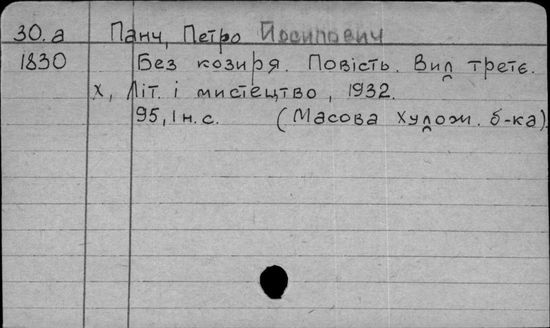 30.а Панч, Петро Йосипович
1830 Без козиря. Повість. Вид третє.
Х., Літ. і мистецтво, 1932.
95, 1 н.с. (Масова худож. б-ка)